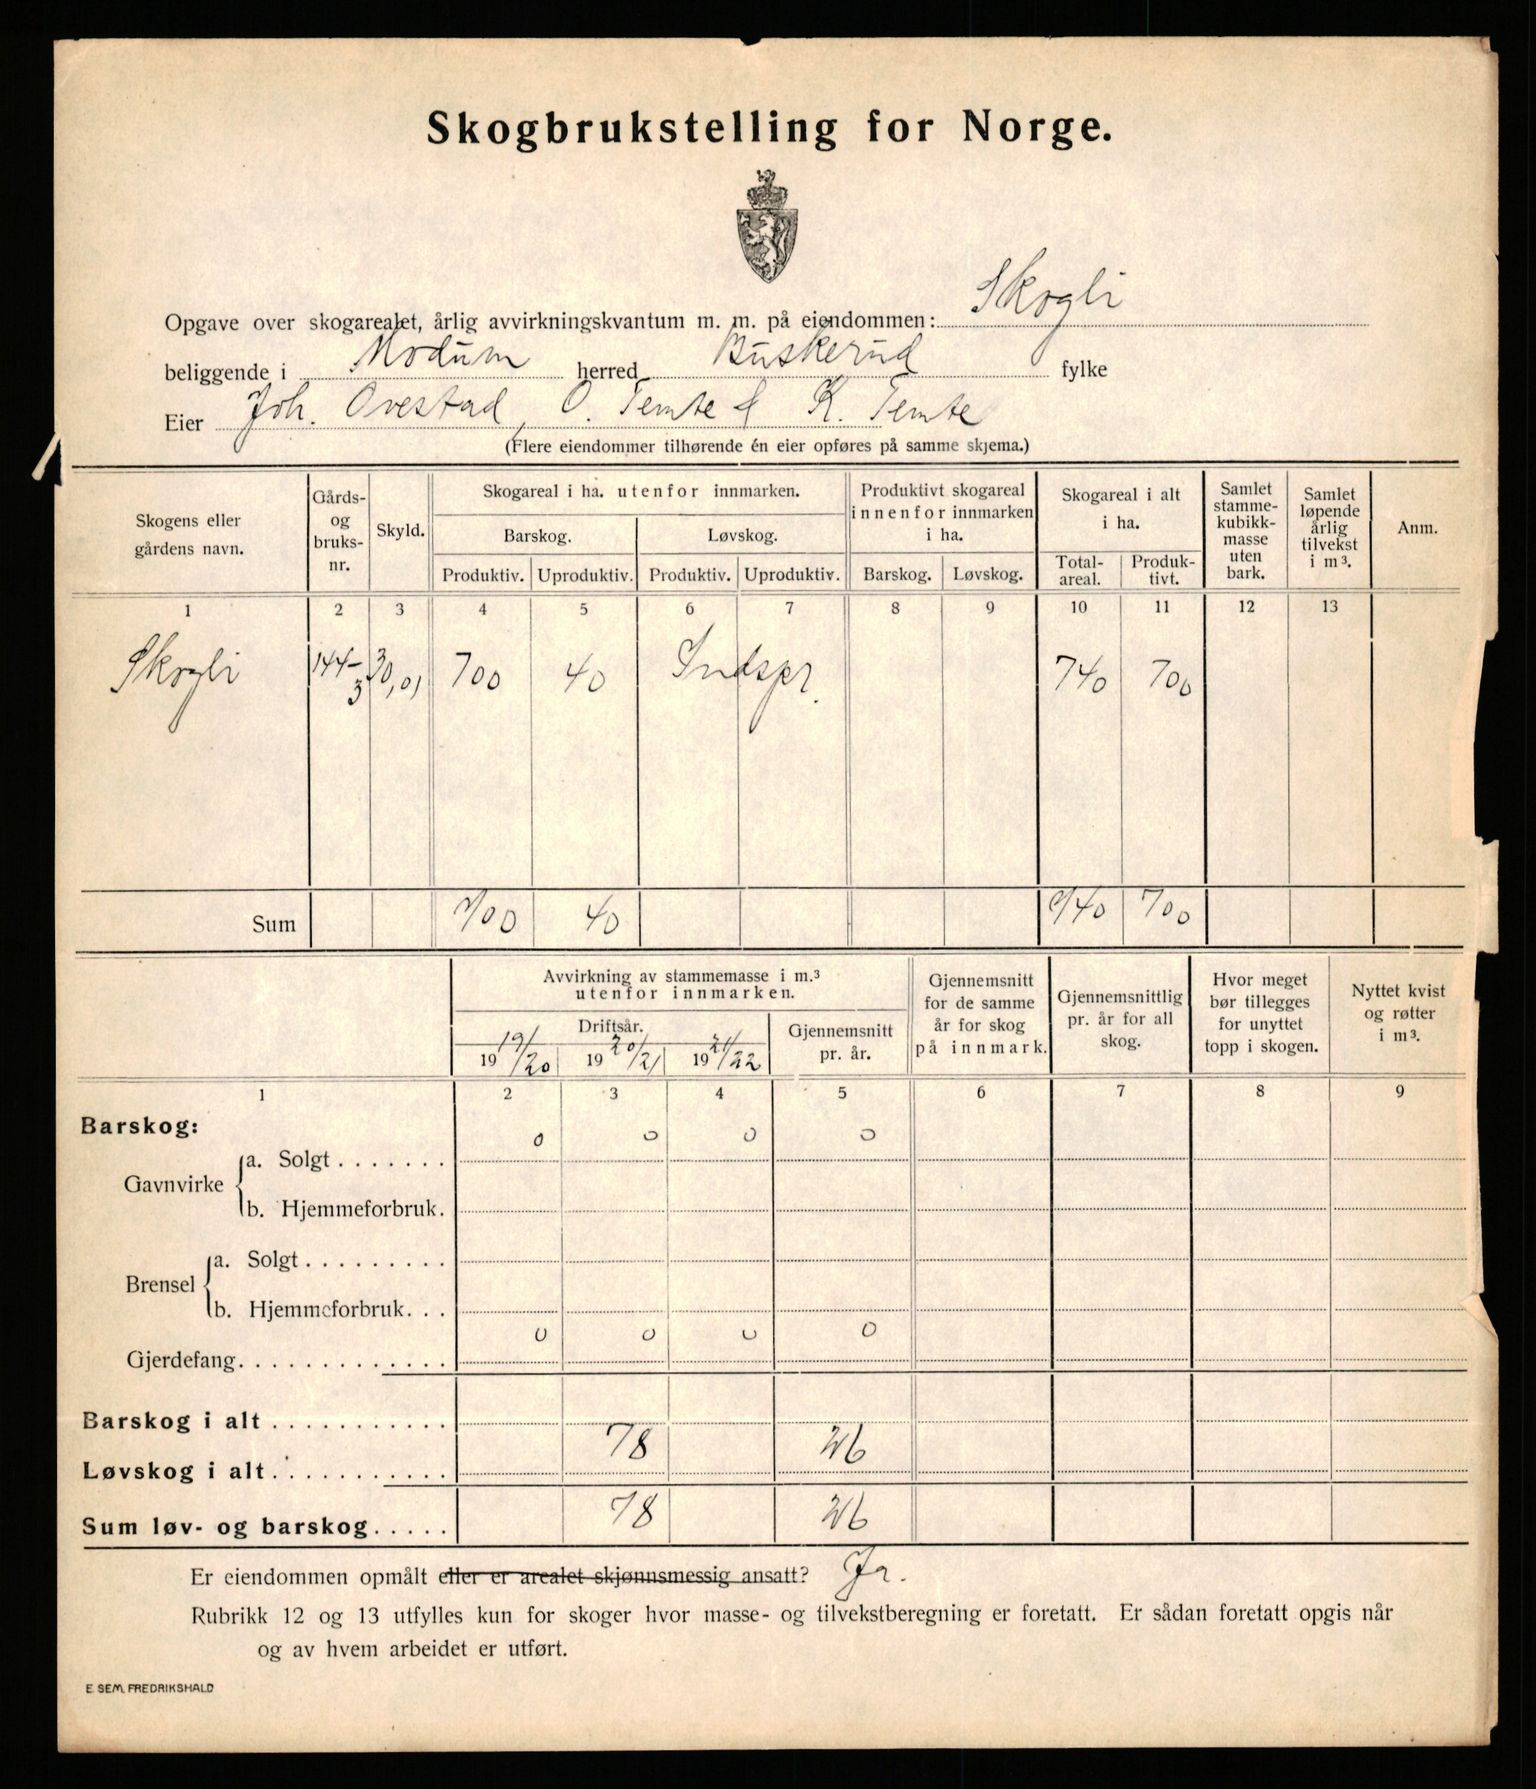 Skogbrukstelling for Norge.
Opgave over skogarealet, årlig avvirkningskvantum m. m. på eiendommen: Skogli
beliggende i Modum herred Buskerud fylke
Eier Joh. Ovestad, O. Temte & K. Temte
(Flere eiendommer tilhørende én eier opføres på samme skjema.)
Skogens eller gårdens navn. | Gårds- og bruks-nr. | Skyld. | Skogareal i ha. utenfor innmarken. | Produktivt skogareal innenfor innmarken i ha. | Skogareal i alt i ha. | Samlet stamme-kubikk-masse uten bark. | Samlet løpende årlig tilvekst i m³. | Anm.
Barskog. | Løvskog.
Produktiv. | Uproduktiv. | Produktiv. | Uproduktiv. | Barskog. | Løvskog. | Total-areal. | Produk-tivt.
1 2 3 4 5 6 7 8 9 10 11 12 13
Skogli 144-3 30,01 700 40 Indspr. 740 700
Sum 700 40 740 700
Avvirkning av stammemasse i m.³ utenfor innmarken. | Gjennemsnitt for de samme år for skog på innmark. | Gjennemsnittlig pr. år for all skog. | Hvor meget bør tillegges for unyttet topp i skogen. | Nyttet kvist og røtter i m³.
Driftsår. | Gjennemsnitt pr. år.
19 19/20 | 19 20/21 | 19 21/22
1 2 3 4 5 6 7 8 9
Barskog:
Gavnvirke
a. Solgt . . . . . . . 0 0 0 0
b. Hjemmeforbruk.
Brensel
a. Solgt . . . . . . . . .
b. Hjemmeforbruk. . .
Gjerdefang. . . . . . . . . . . . . 0 0 0 0
Barskog i alt . . . . . . . . . . .
Løvskog i alt . . . . . . . . . . . 78 26
Sum løv- og barskog . . . . . 78 26
Er eiendommen opmålt eller er arealet skjønnsmessig ansatt? Ja.
Rubrikk 12 og 13 utfylles kun for skoger hvor masse- og tilvekstberegning er foretatt. Er sådan foretatt opgis når
og av hvem arbeidet er utført.
E. SEM. FREDRIKSHALD